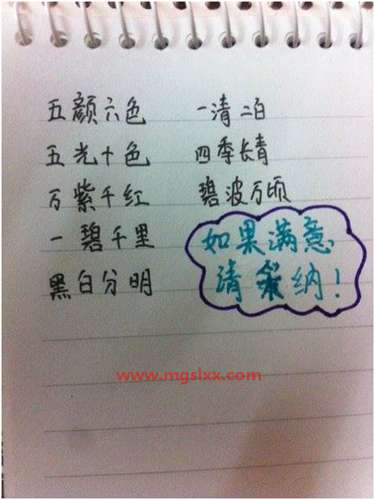 五颜六色 一清二白
五光十色 四季长青
万紫千红 碧波万顷
一碧千里
黑白分明
如果满意
请采纳!
www.mgslxx.com